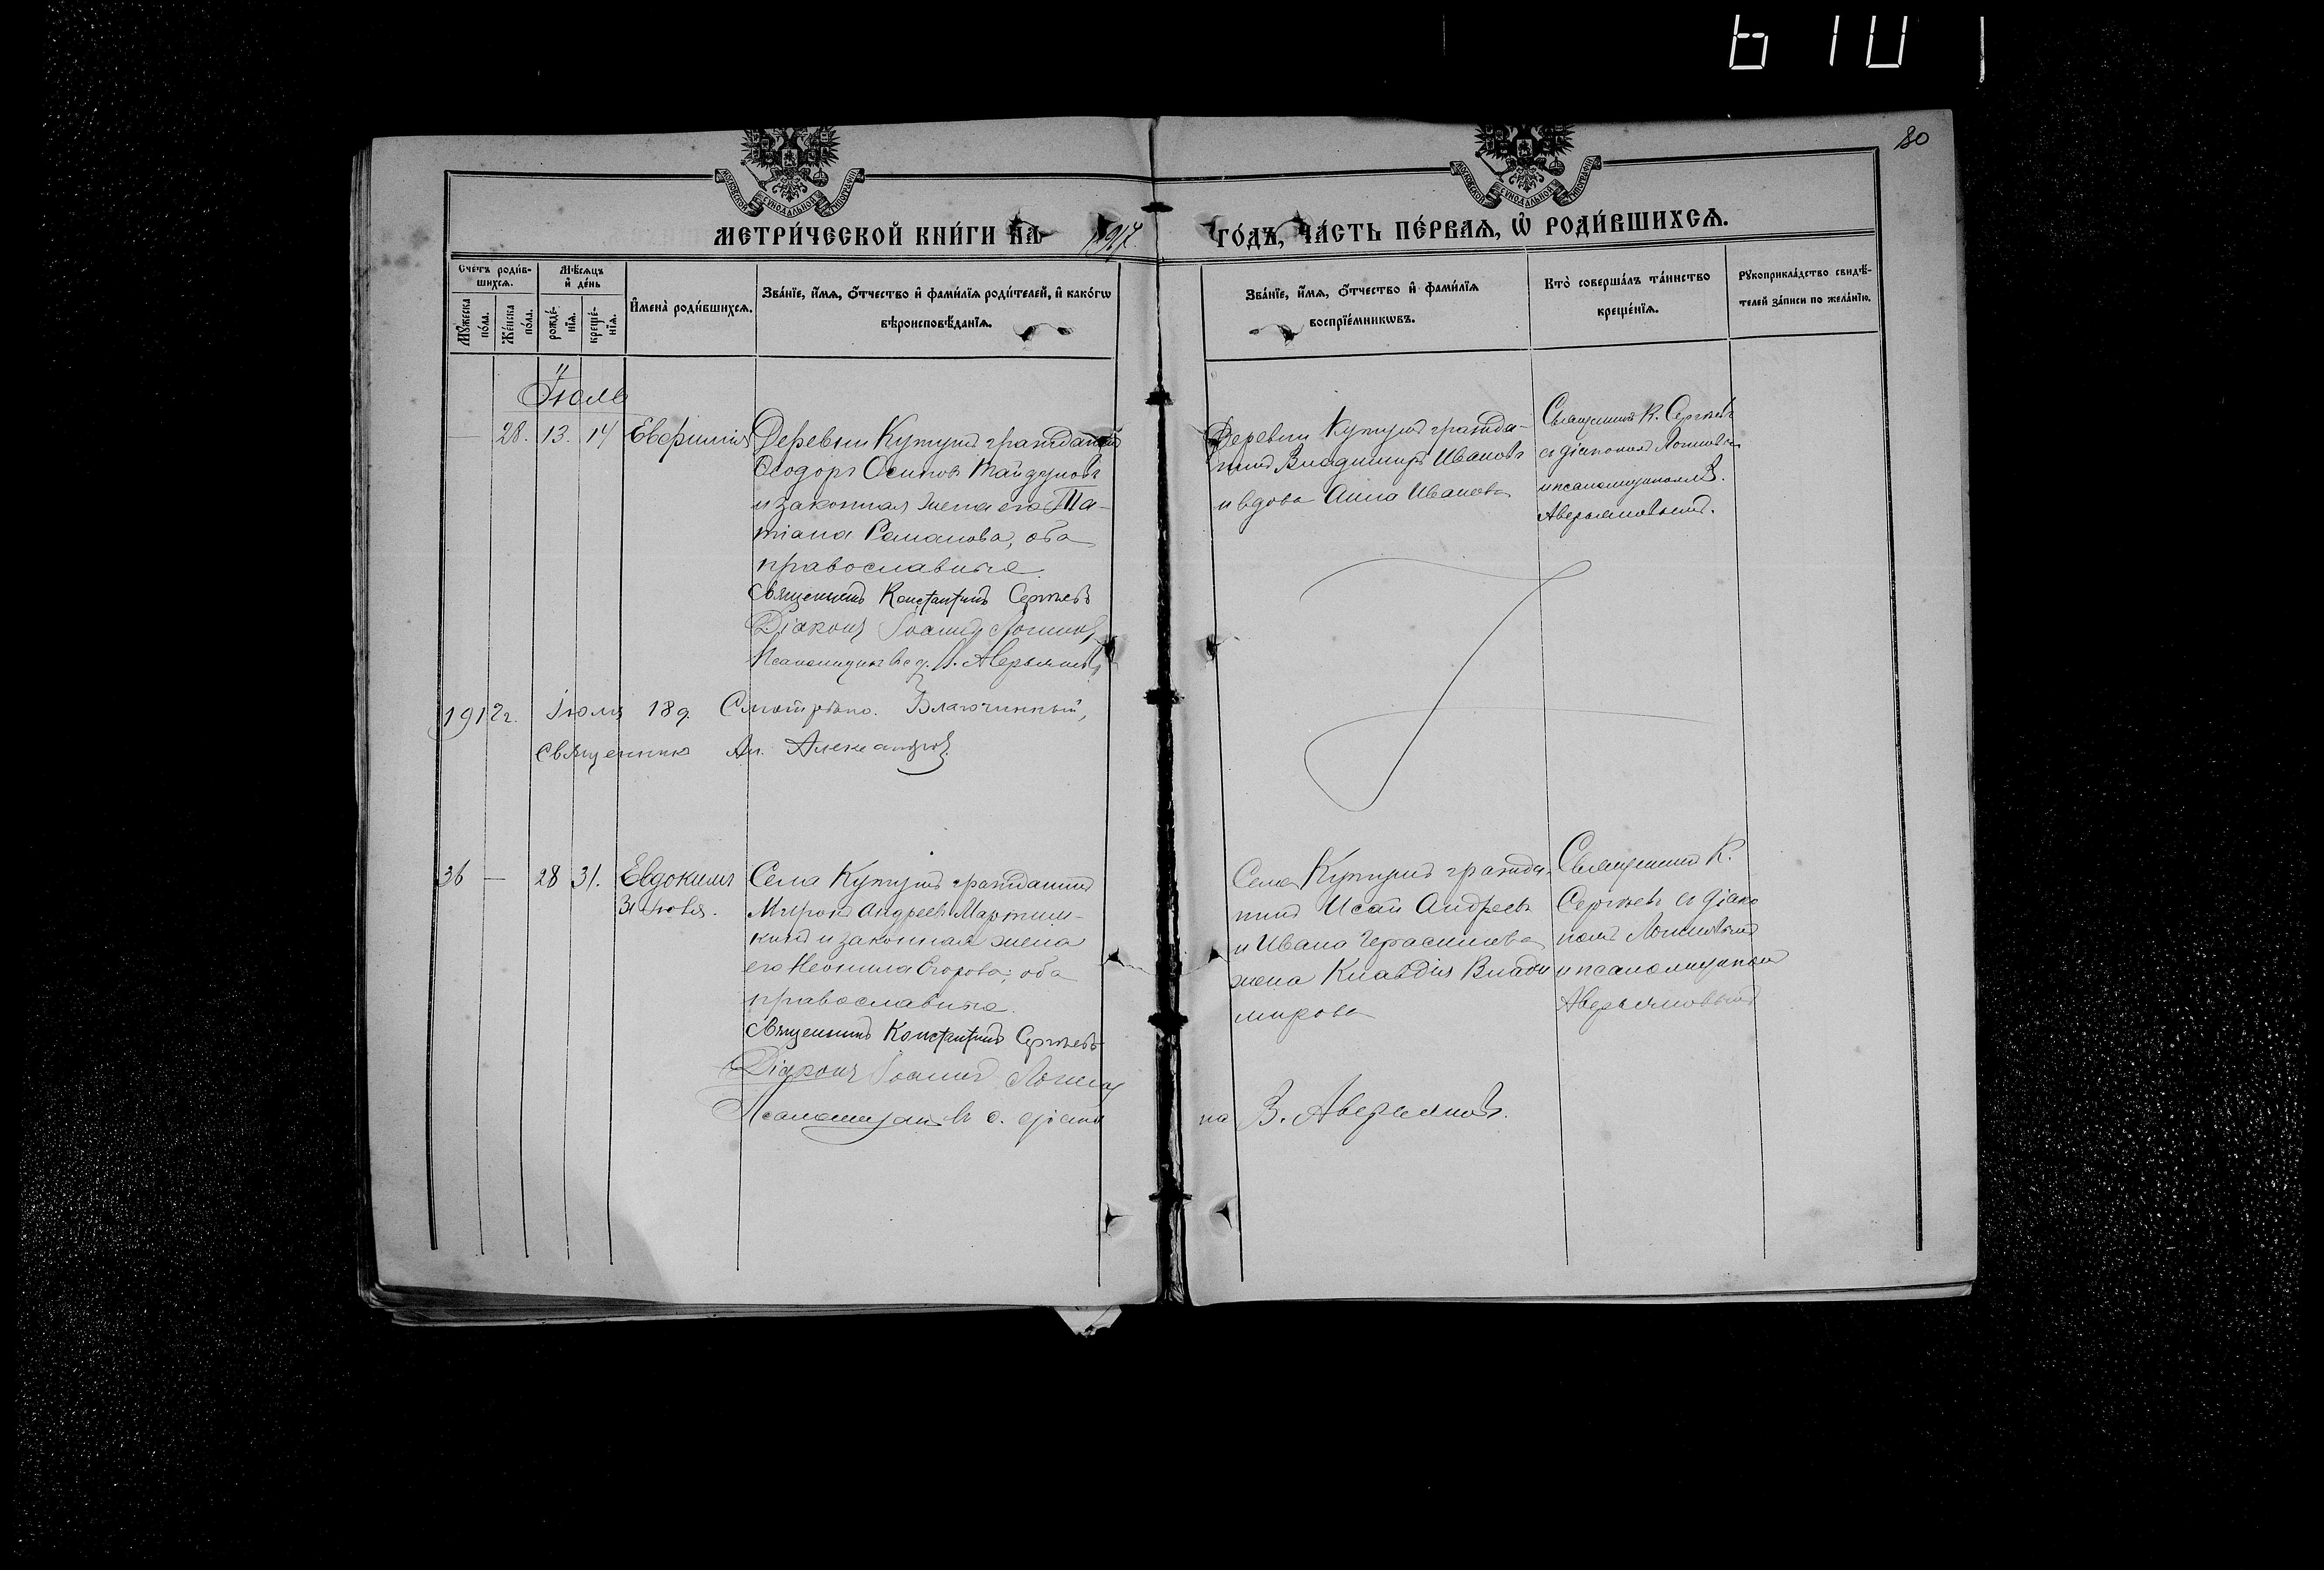 6 10
80
МОСКОВСКОЙ СѴНОДАЛЬНОЙ ТИПОГРАФІИ
МОСКОВСКОЙ СѴНОДАЛЬНОЙ ТИПОГРАФІИ
МЕТРИ́ЧЕСКОЙ КНИ́ГИ НА 1917 ГО́ДЪ, ЧА́СТЬ ПЕ́РВАЯ, Ѡ҆ РОДИ́ВШИХСЯ.
Сче́тъ роди́в-
шихся.
Мѣ́сяцъ
и҆ де́нь
Мꙋ́жеска
по́ла.
Же́нска
по́ла.
рожде́-
нїя.
креще́-
нїя.
И҆мена̀ роди́вшихся.
Зва́нїе, и҆́мя, ѻ҆́тчество и҆ фами́лїя роди́телей, и҆ како́гѡ
вѣроисповѣ́данїя.
Зва́нїе, и҆́мя, ѻ҆́тчество и҆ фами́лїя
воспрїе́мникѡвъ.
Кто̀ соверша́лъ та́инство
креще́нїя.
Рꙋкоприкла́дство свидѣ́-
телей за́писи по жела́нїю.
Іюль
— 28. 13. 14 Евфимия
Деревни Кутушъ гражданинъ
Ѳеодоръ Осиповъ Тайдуновъ
и законная жена его Та-
тіана Романова, оба
православные
Священникъ Константинъ Сергѣевъ
Діаконъ Іоаннъ Логинов
Деревни Кутушъ гражда-
нинъ Владимиръ Ивановъ
и вдова Анна Иванова
Священникъ К. Сергѣевъ
съ діакономъ Логиновым
и псаломщикомъ В.
Аверьяновымъ.
1917 г. Іюля 18 д. Смотрѣно. Благочинный,
священник Ал. Александров.
36 — 28 31. Евдокимъ
31 Іюля.
Села Кутушъ гражданинъ
Миронъ Андреевъ Мартиш-
кинъ и законная жена
его Неонила Егорова; оба
православные.
Священникъ Константинъ Сергѣевъ
Діаконъ Іоаннъ Логинов
Псаломщикъ в с. діако
на В. Аверьяновъ.
Села Кутушъ гражда-
нинъ Исай Андреевъ
и Ивана Герасимова
жена Клавдія Влади
мирова
Священник К.
Сергѣевъ съ діако
номъ Логиновымъ
и псаломщиком
Аверьяновымъ